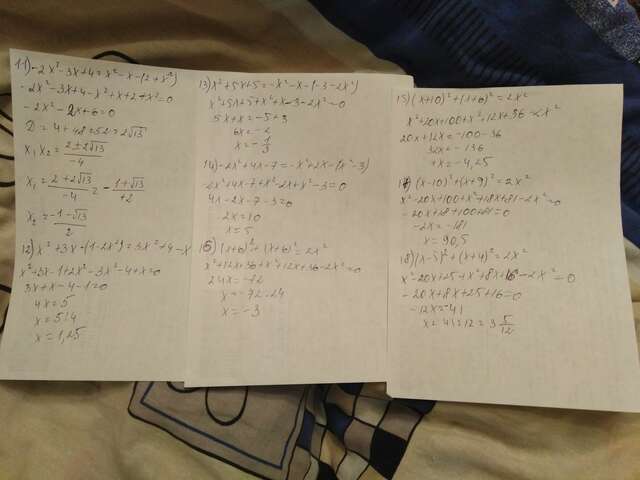 11) -2x² - 3x + 4 = x² - x - (2 + x²)
-2x² - 3x + 4 - x² + x + 2 + x² = 0
-2x² - 2x + 6 = 0
D = 4 + 48 = 52 = 2√13
x₁ x₂ = (2 ± 2√13)/-4
x₁ = (2 + 2√13)/-4 = - (1 + √13)/+2
x₂ = (-1 - √13)/2
12) x² + 3x - (1 - 2x²) = 3x² + 4 - x
x² + 3x - 1 + 2x² - 3x² - 4 + x = 0
3x + x - 4 - 1 = 0
4x = 5
x = 5/4
x = 1,25
13) x² + 5x + 5 = -x² - x - (-3 - 2x²)
x² + 5x + 5 + x² + x - 3 - 2x² = 0
5x + x = -5 + 3
6x = -2
x = -1/3
14) -2x² + 4x - 7 = -x² + 2x - (x² - 3)
-2x² + 4x - 7 + x² - 2x + x² - 3 = 0
4x - 2x - 7 - 3 = 0
2x = 10
x = 5
(x + 6)² + (x + 6)² = 2x²
x² + 12x + 36 + x² + 12x + 36 - 2x² = 0
24x = -72
x = -72:24
x = -3
15) (x + 10)² + (x + 6)² = 2x²
x² + 20x + 100 + x² + 12x + 36 - 2x²
20x + 12x = -100 - 36
32x = -136
x = -4,25
(x - 10)² + (x + 9)² = 2x²
x² - 20x + 100 + x² + 18x + 81 - 2x² = 0
-2x = -181
x = 90,5
18) (x - 5)² + (x + 4)² = 2x²
x² - 20x + 25 + x² + 8x + 16 - 2x² = 0
-20x + 8x + 25 + 16 = 0
-12x = -41
x = 41:12 = 3 5/12